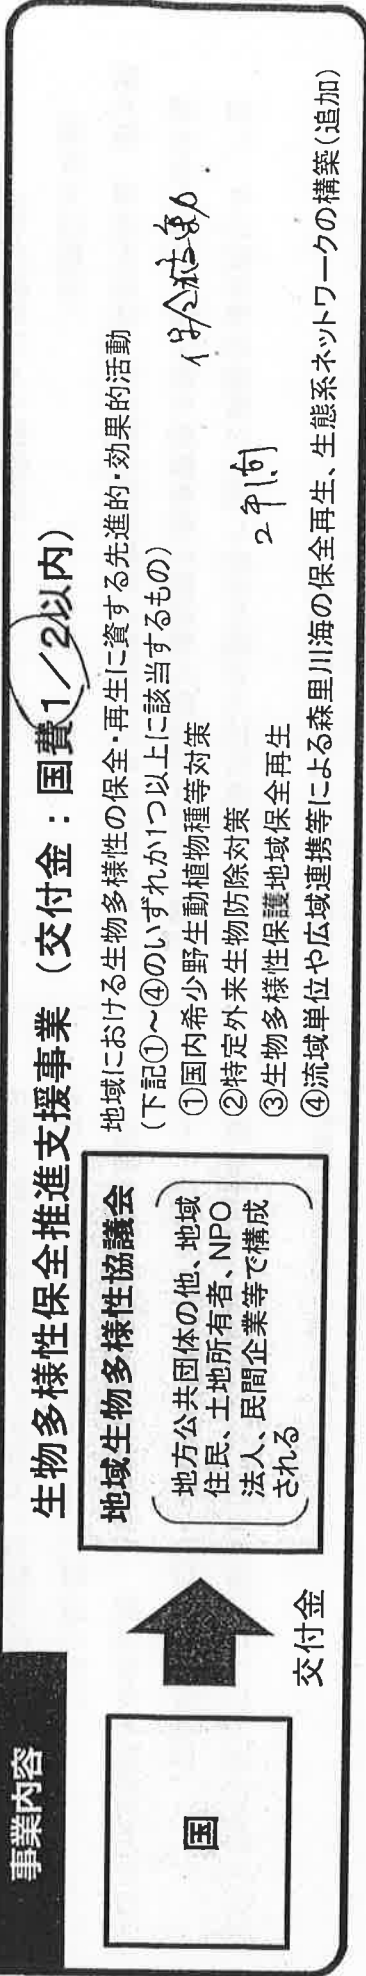 事業内容
生物多様性保全推進支援事業（交付金：国費1／2以内）
国
交付金
地域生物多様性協議会
地方公共団体の他、地域
住民、土地所有者、NPO
法人、民間企業等で構成
される
地域における生物多様性の保全・再生に資する先進的・効果的活動
(下記①～④のいずれか1つ以上に該当するもの)
①国内希少野生動植物種等対策
②特定外来生物防除対策
③生物多様性保護地域保全再生
④流域単位や広域連携等による森里川海の保全再生、生態系ネットワークの構築(追加)
2年間